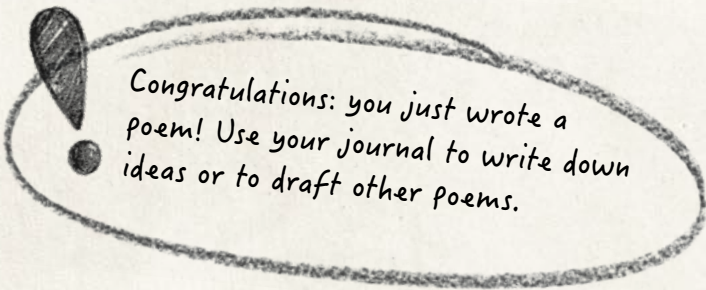 Congratulations: you just wrote a
poem! Use your journal to write down
ideas or to draft other poems.